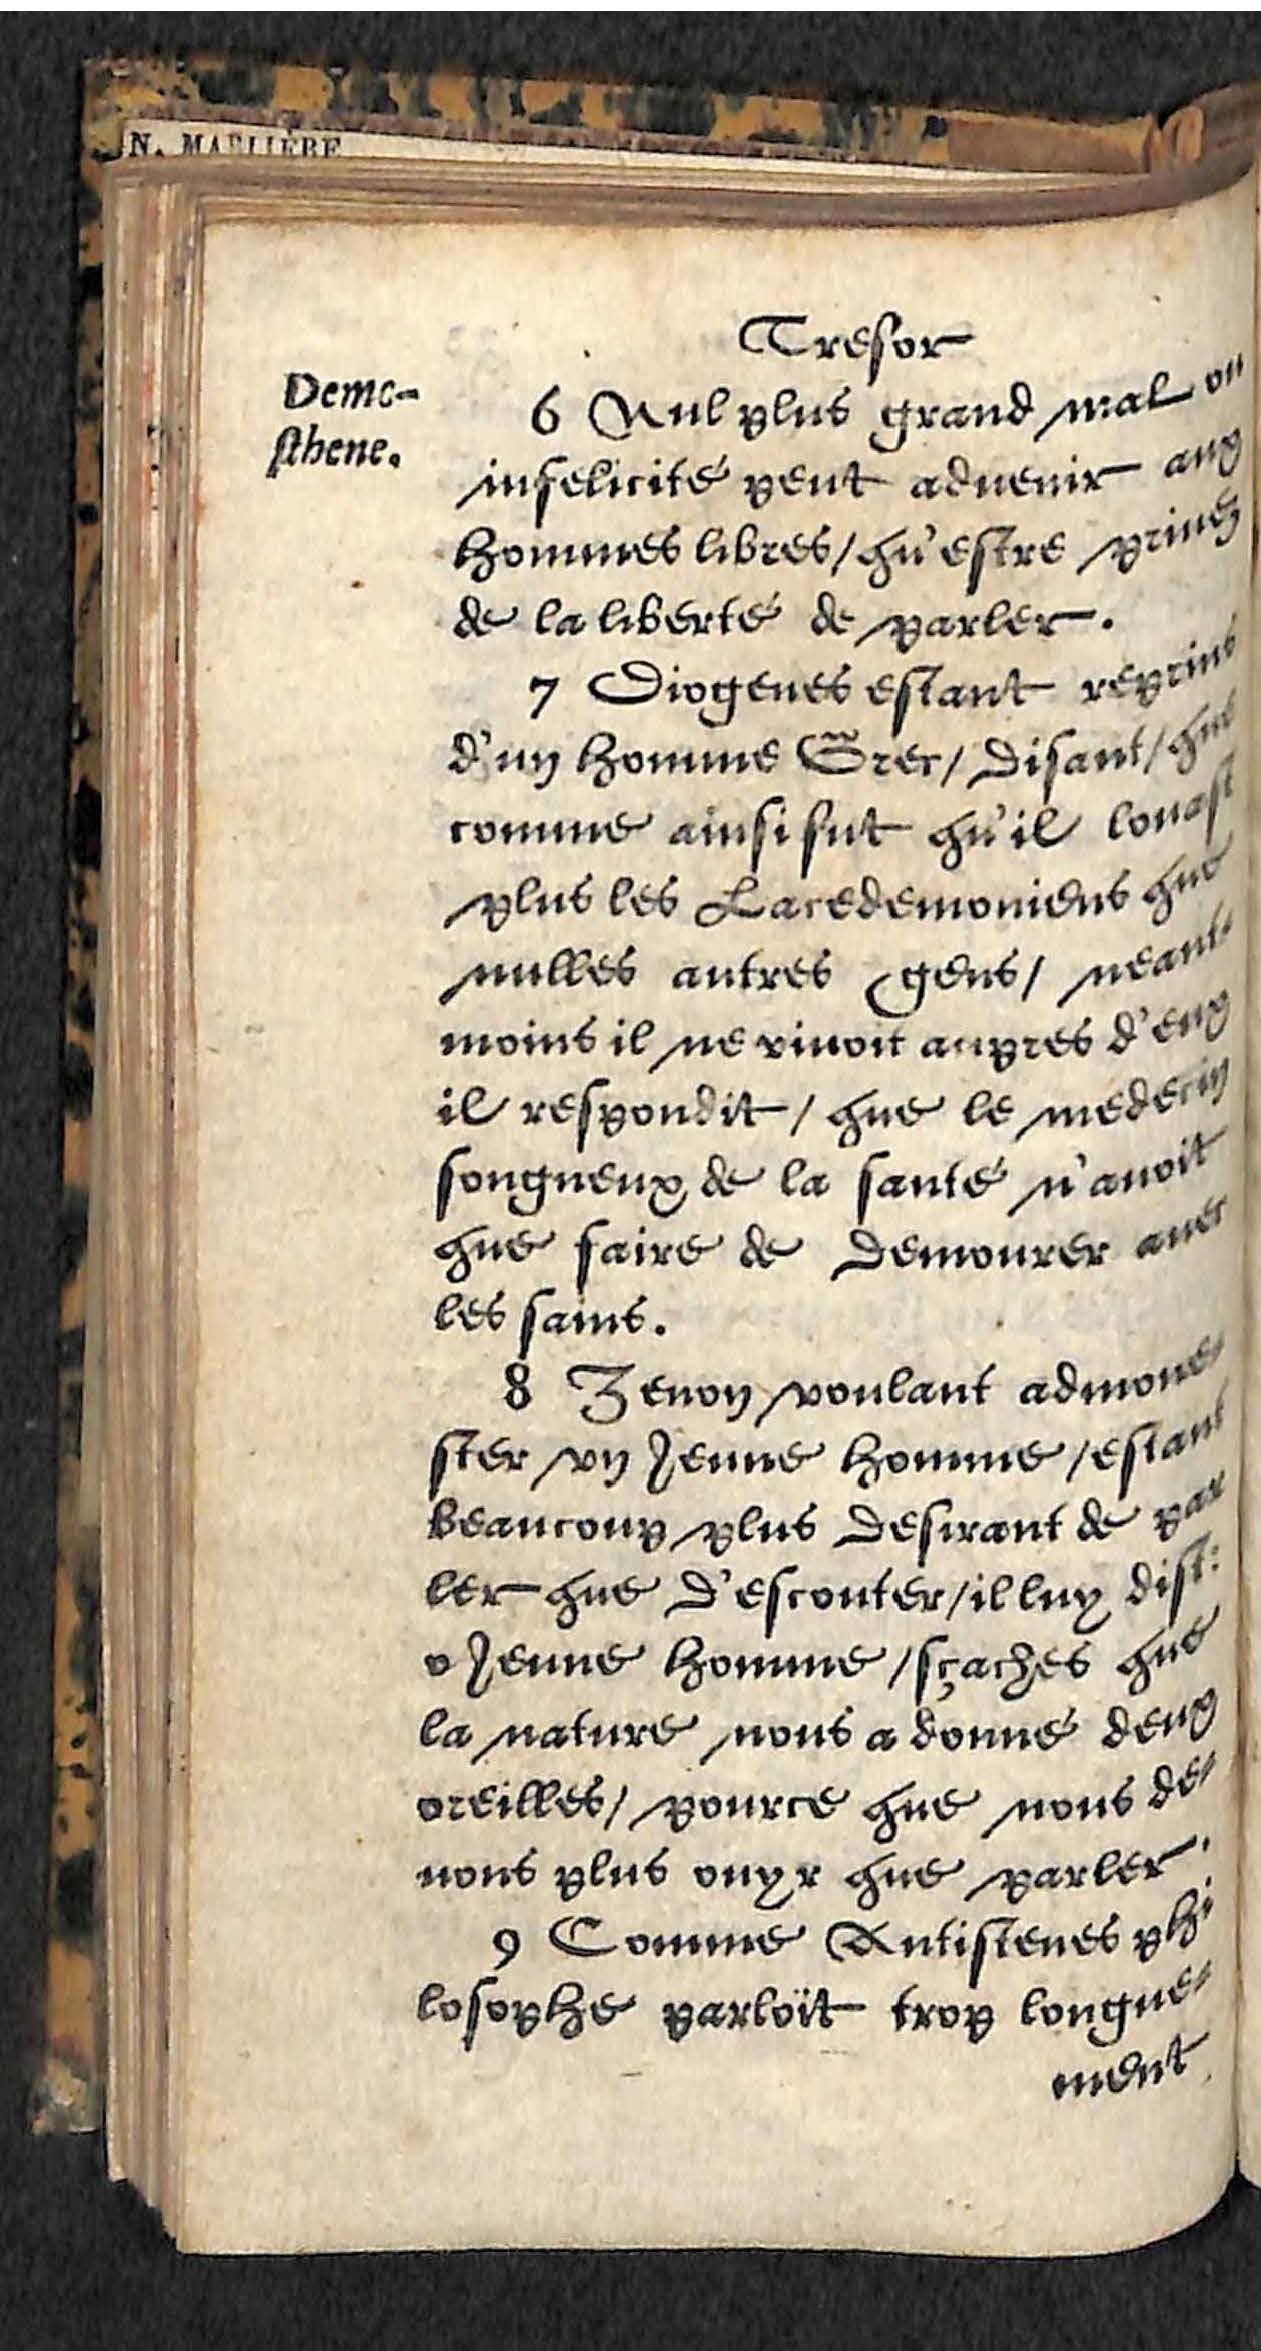 N. MARLIÈRE
Tresor
Demo-
sthene.
6 Nul plus grand mal ou
infelicité peut aduenir aux
hommes libres/qu'estre priuez
de la liberté de parler.
7 Diogenes estant reprins
d'un homme Grec/ disant/que
comme ainsi fut qu'il louast
plus les Lacedemoniens que
nulles autres gens/ neant-
moins il ne viuoit aupres d'eux
il respondit/ que le medecin
songneux de la santé n'auoit
que faire de demourer auec
les sains.
8 Zenon voulant admone-
ster vn Jeune homme/estant
beaucoup plus desirant de par
ler que d'escouter/il luy dist:
o Jeune homme/sçaches que
la nature nous a donné deux
oreilles/ pource que nous de-
uons plus ouyr que parler.
9 Comme Antistenes phi
losophe parloit trop longue-
ment